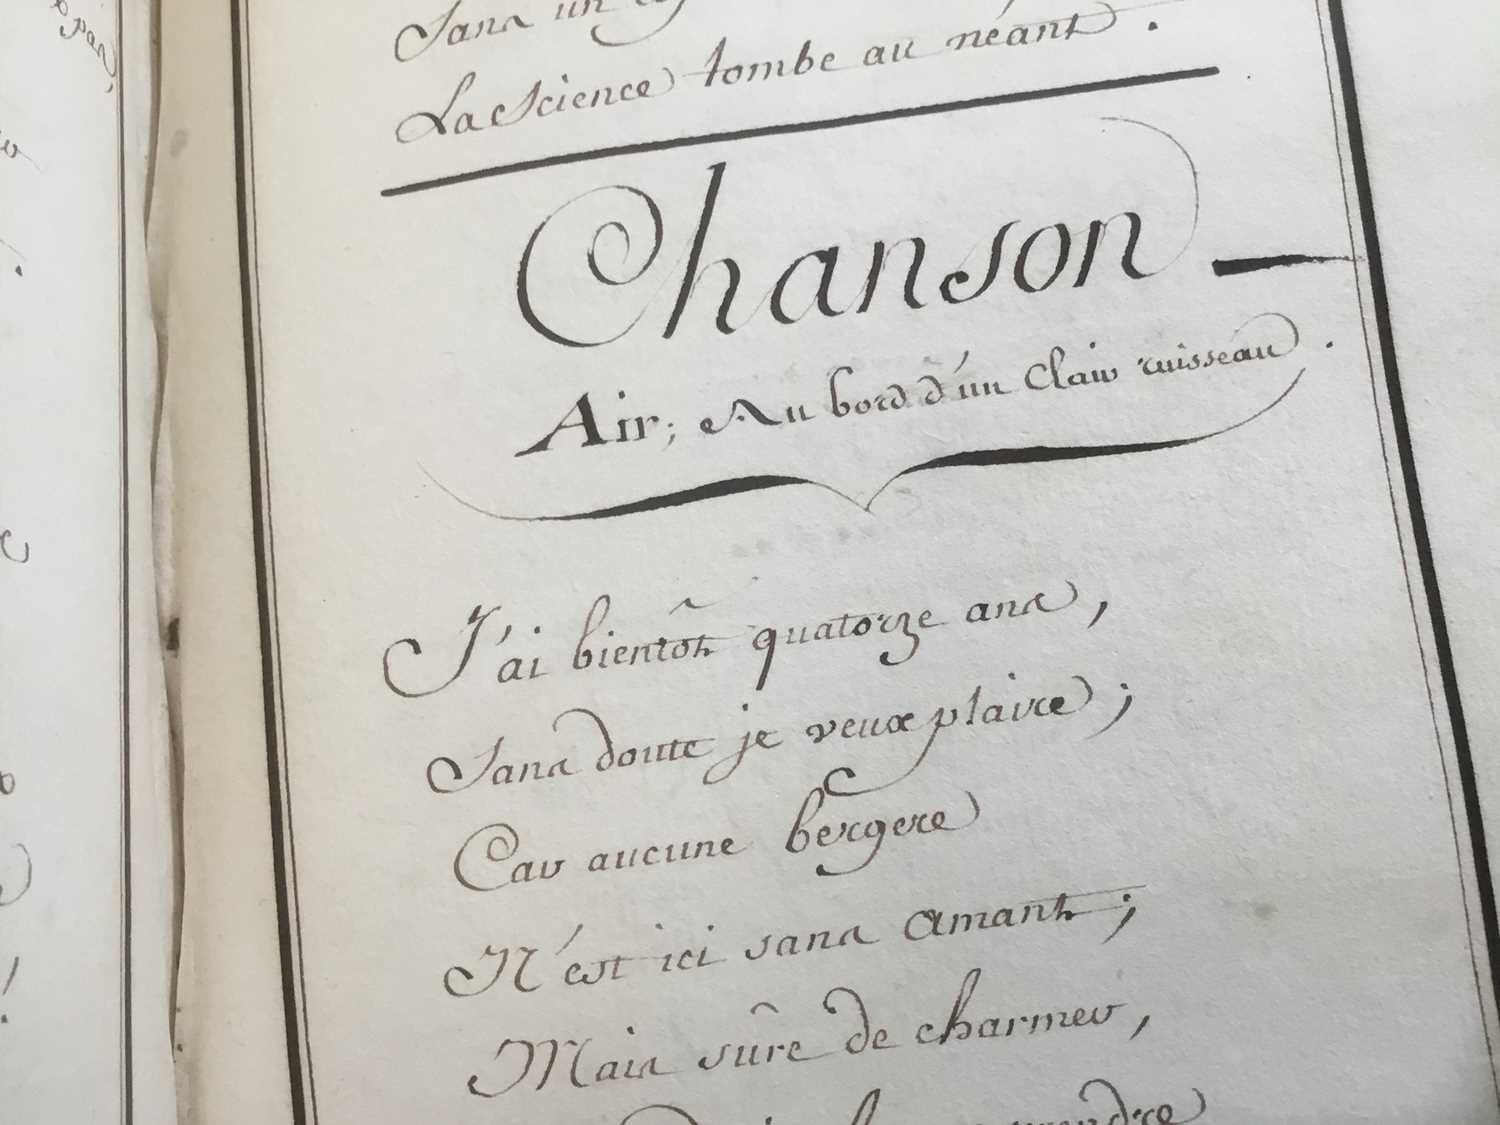 Sans un
La Science tombe au néant.
Chanson
Air; Au bord d'un Clair ruisseau.
J'ai bientôt quatorze ans,
Sans doute je veux plaire;
Car aucune bergere
N'est ici sans amant;
Mais sûre de charmer,